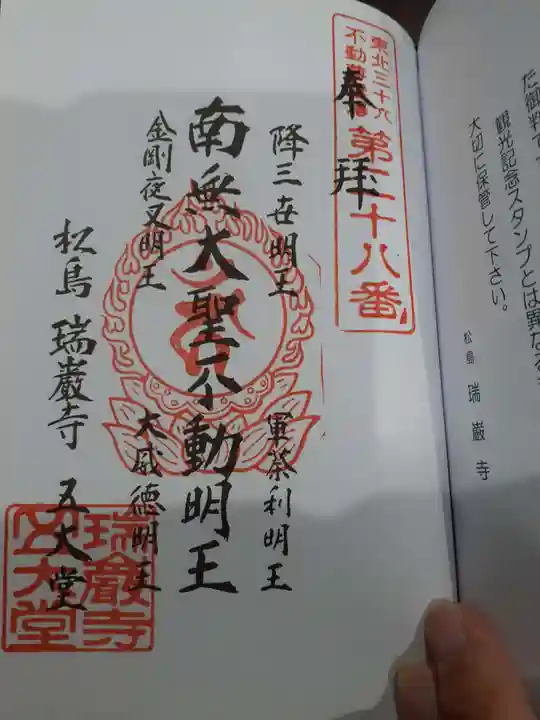 だ御判で
観光記念スタンプとは異なる
大切に保管して下さい。
松島 瑞巌寺
東北三十六
不動尊霊場
第二十八番
奉拝
降三世明王
軍荼利明王
南無大聖不動明王
金剛夜叉明王
大威徳明王
松島 瑞巌寺 五大堂
瑞巌寺
五大堂